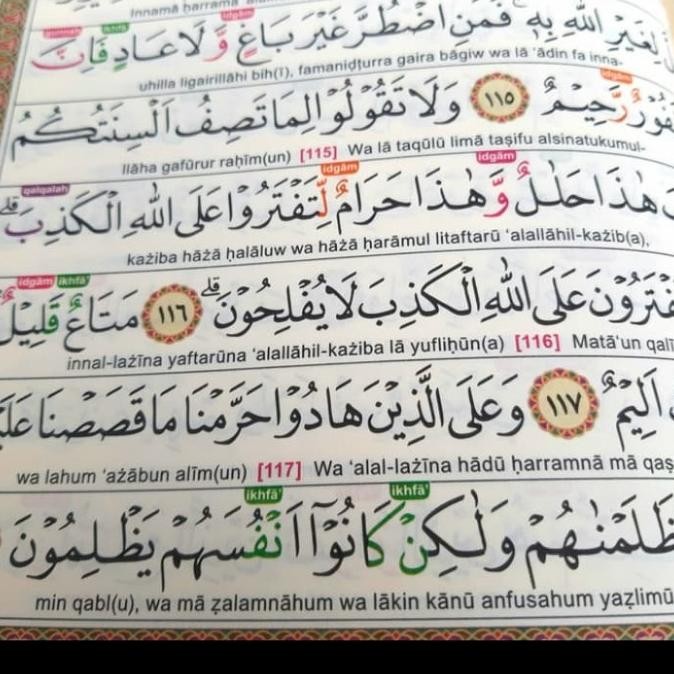 Innamā ḥarrama
idgām
ikhfā'
لِغَيْرِ اللّٰهِ بِهٖۚ فَمَنِ اضْطُرَّ غَيْرَ بَاغٍ وَّلَا عَادٍ فَاِنَّ
uhilla ligairillāhi bih(ī), famaniḍṭurra gaira bāgiw wa lā 'ādin fa inna-
idgām
رَّحِيْمٌ ١١٥ وَلَا تَقُوْلُوْا لِمَا تَصِفُ اَلْسِنَتُكُمُ
llāha gafūrur raḥīm(un) [115] Wa lā taqūlū limā taṣifu alsinatukumul-
qalqalah idgām idgām
هٰذَا حَلٰلٌ وَّهٰذَا حَرَامٌ لِّتَفْتَرُوْا عَلَى اللّٰهِ الْكَذِبَۗ
każiba hāżā ḥalāluw wa hāżā ḥarāmul litaftarū 'alallāhil-każib(a),
idgām ikhfā'
يَفْتَرُوْنَ عَلَى اللّٰهِ الْكَذِبَ لَا يُفْلِحُوْنَۗ ١١٦ مَتَاعٌ قَلِيْلٌ
innal-lażīna yaftarūna 'alallāhil-każiba lā yufliḥūn(a) [116] Matā'un qalī
اَلِيْمٌ ١١٧ وَعَلَى الَّذِيْنَ هَادُوْا حَرَّمْنَا مَا قَصَصْنَا
wa lahum 'ażābun alīm(un) [117] Wa 'alal-lażīna hādū ḥarramnā mā qaṣ
ikhfā' ikhfā'
ظَلَمْنٰهُمْ وَلٰكِنْ كَانُوْٓا اَنْفُسَهُمْ يَظْلِمُوْنَ
min qabl(u), wa mā ẓalamnāhum wa lākin kānū anfusahum yaẓlimū